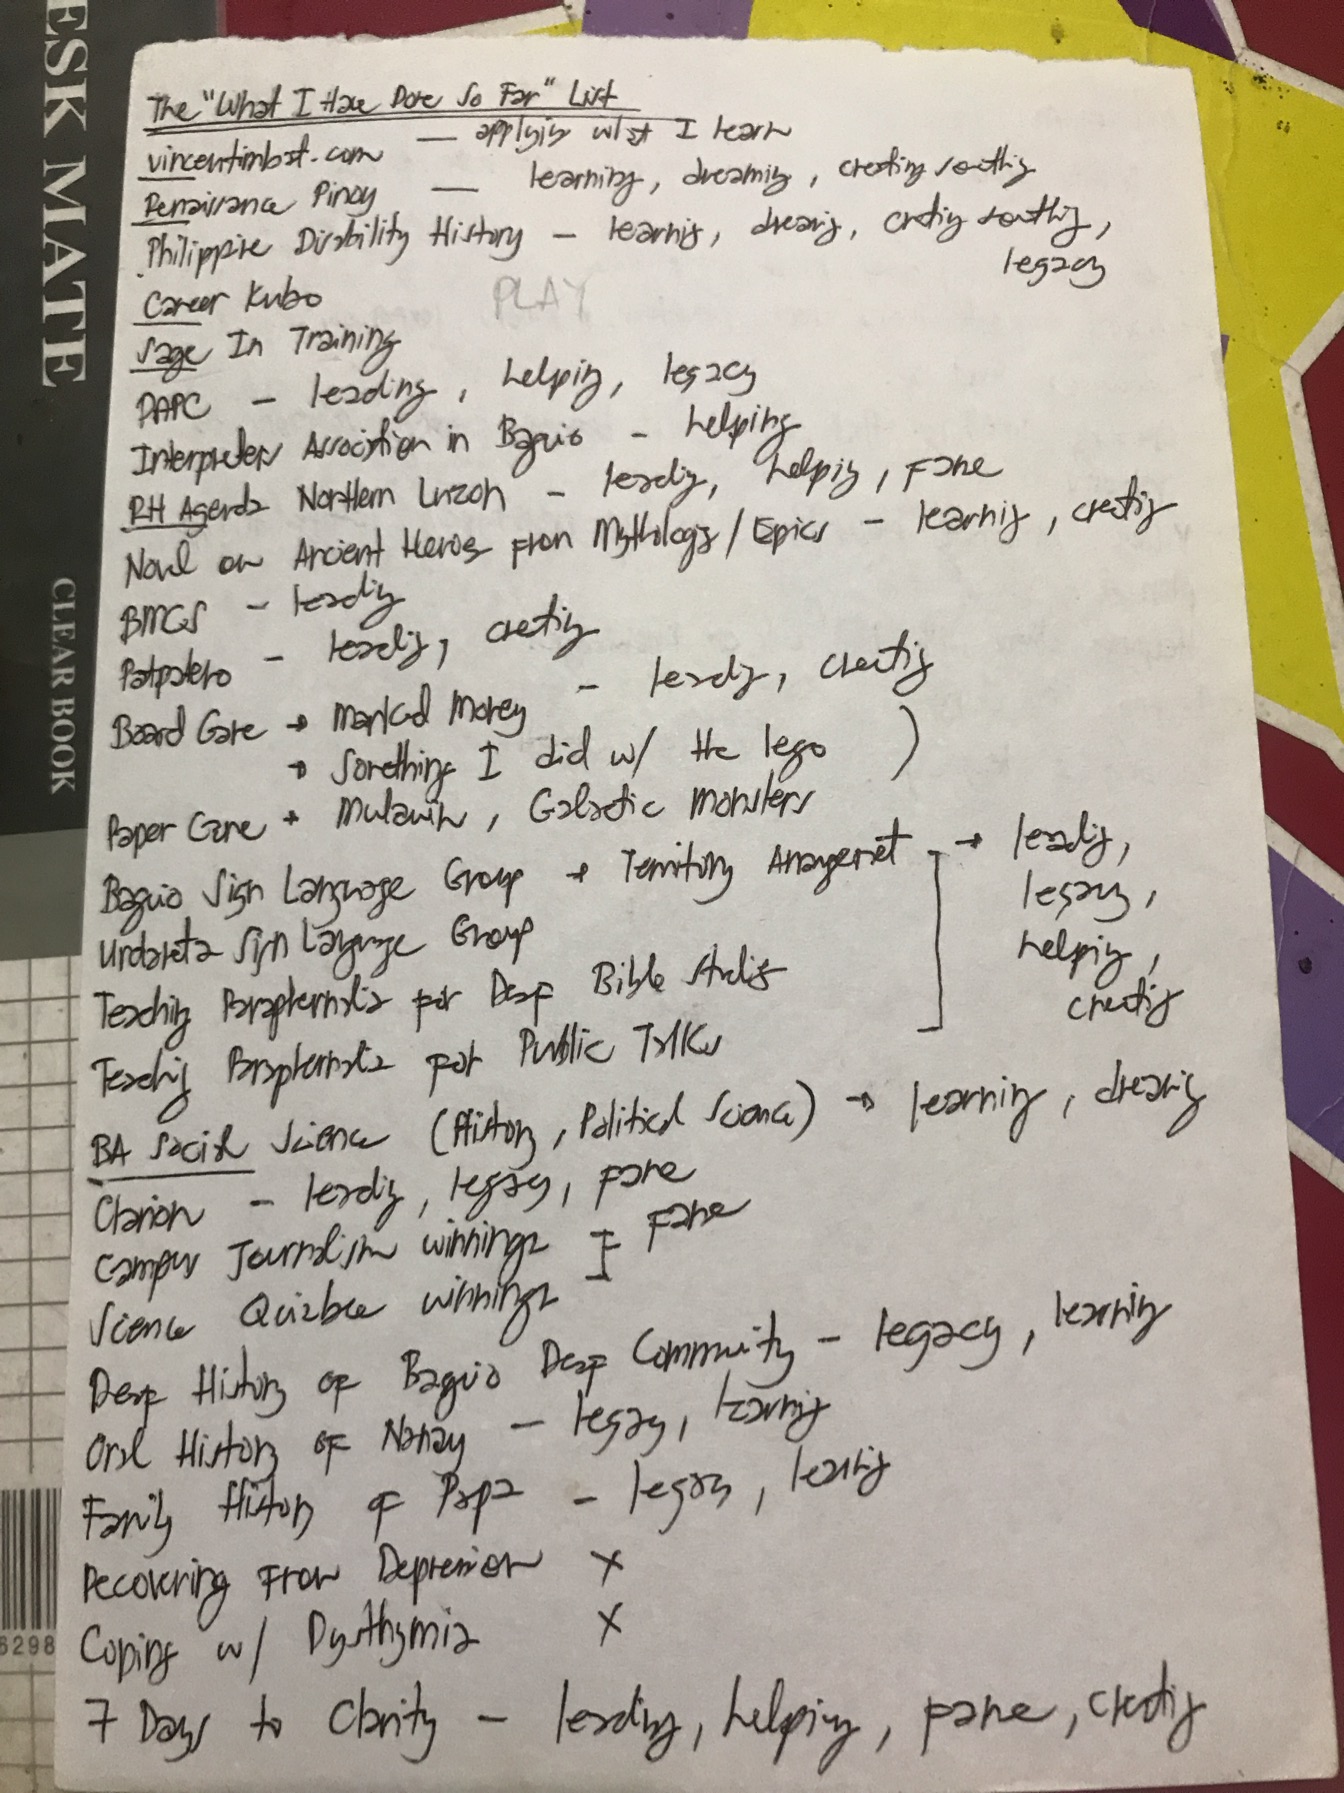 ESK MATE
CLEAR BOOK
6298
The "What I Have Done So Far" List
vincentimbat.com — applying what I learn
Renaissance Pinoy — learning, dreaming, creating something
Philippine Disability History – learning, dreaming, creating something,
legacy
Career Kubo
PLAY
Sage In Training
PAPC – leading, helping, legacy
Interpreters Association in Baguio – helping
RH Agenda Northern Luzon – leading, helping, fame
Novel on Ancient Heroes from Mythology/Epics – learning, creating
BMCS – leading
Patpatero – leading, creating
Board Game → Marked Money – leading, creating
→ Something I did w/ the lego )
Paper Game → Mulawin, Galactic Monsters
Baguio Sign Language Group → Territory Arrangement → leading,
legacy,
Urdaneta Sign Language Group
helping,
Teaching Paraphernalia for Deaf Bible Studies
creating
Teaching Paraphernalia for Public Talks
BA Social Science (History, Political Science) → learning, dreaming
Clarion – leading, legacy, fame
Campus Journalism winnings fame
Science Quizbee winnings
Deaf History of Baguio Deaf Community – legacy, learning
Oral History of Nanay – legacy, learning
Family History of Papa – legacy, learning
Recovering From Depression X
Coping w/ Dysthymia X
7 Days to Clarity – leading, helping, fame, creating